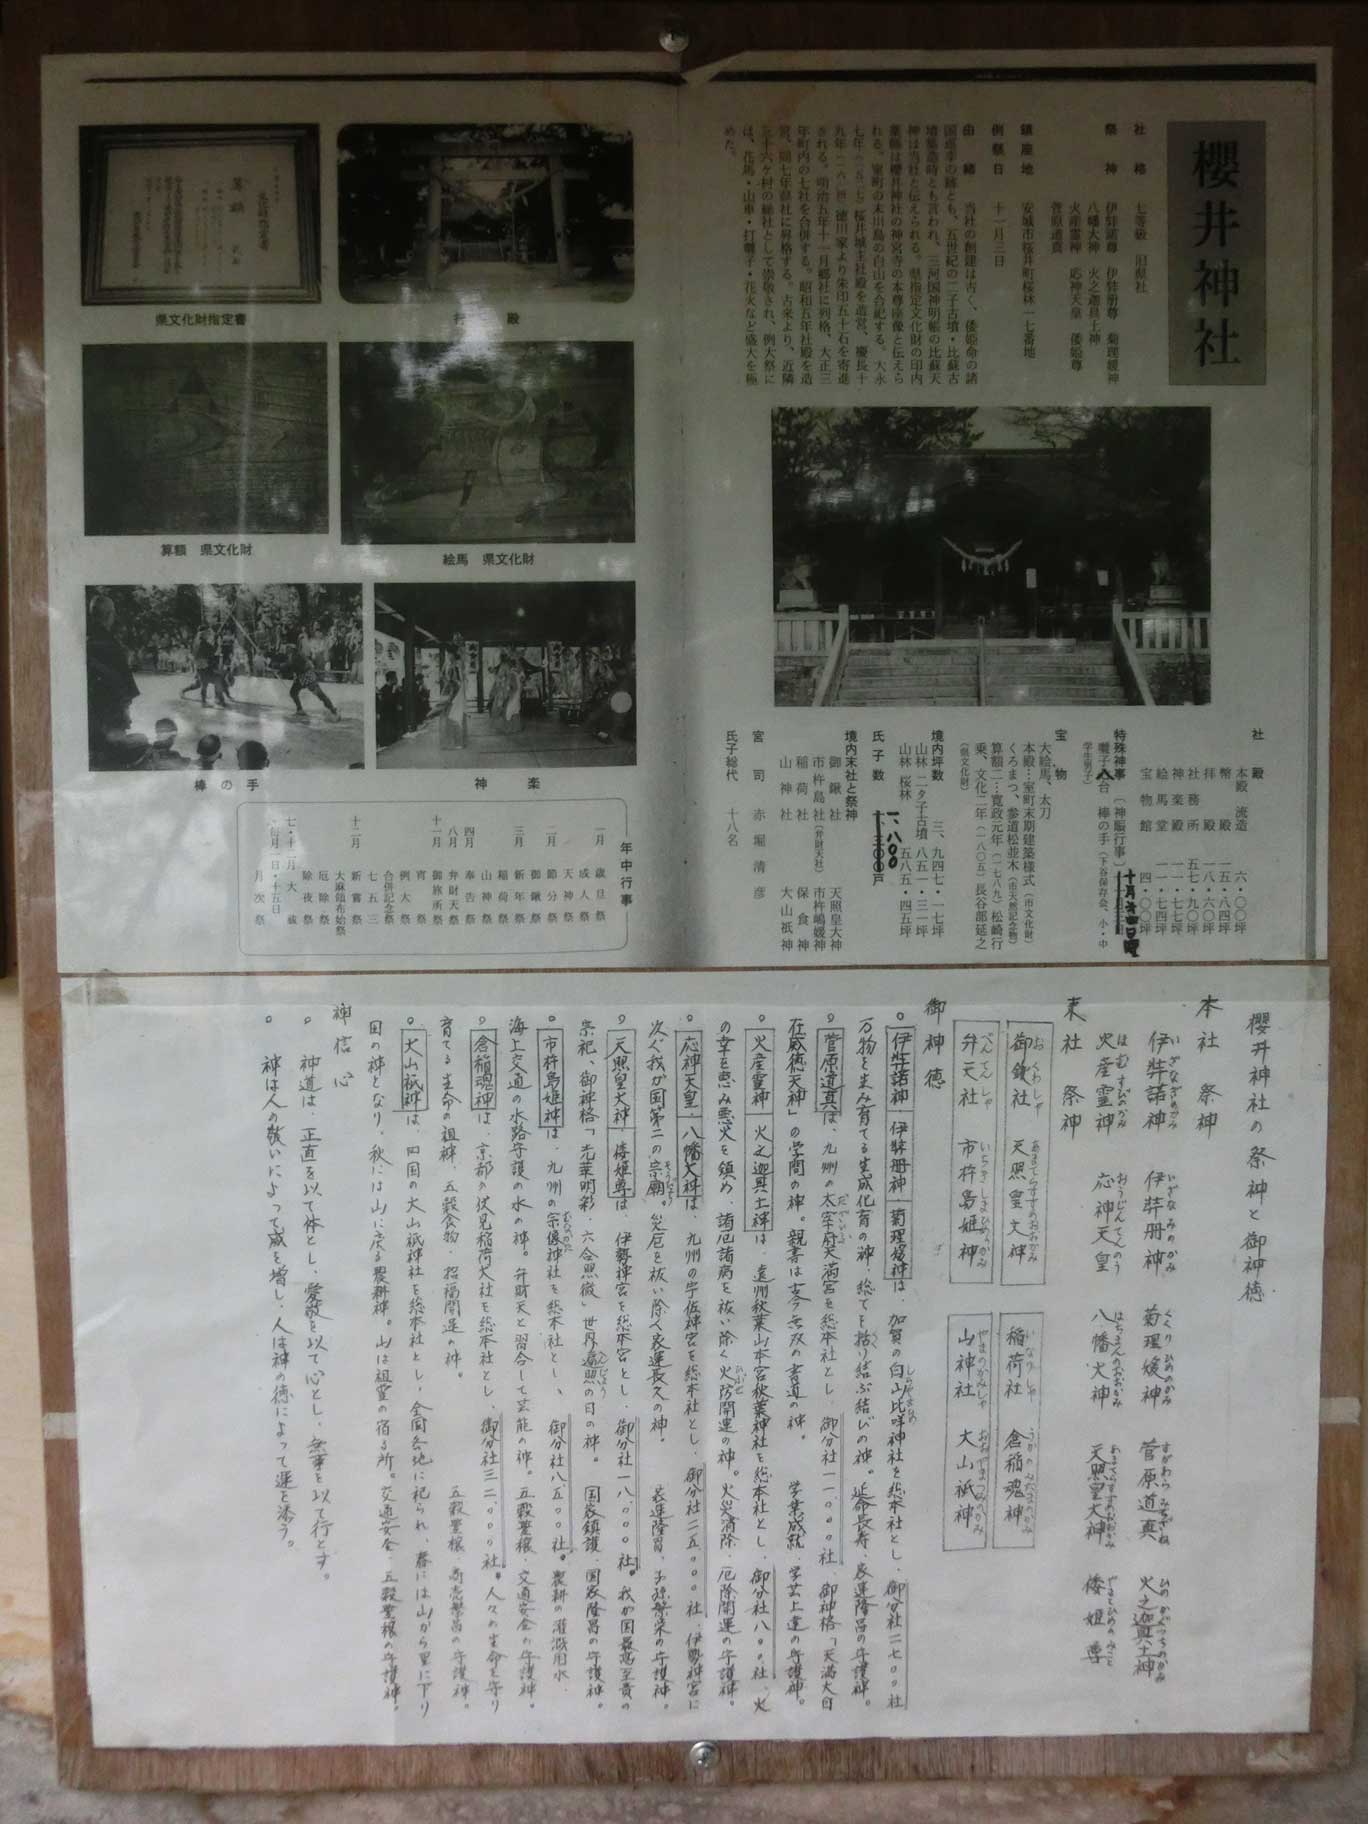 櫻井神社
社格 七等級 旧県社
祭神 伊弉諾尊 伊弉册尊 菊理媛神
八幡大神 火之迦具土神
火産霊神 応神天皇 倭姫尊
菅原道真
鎮座地 安城市桜井町桜林一七番地
例祭日 十一月三日
由緒 当社の創建は古く、倭姫命の諸
国巡幸の跡とも、五世紀の二子古墳・比蘇古
墳築造時とも言われ、三河国神明帳の比蘇天
神は当社と伝えられる。県指定文化財の印内
薬師は櫻井神社の神宮寺の本尊座像と伝えら
れる。室町の末川島の白山を合記する。大永
七年(一五二七)桜井城主社殿を造営、慶長十
九年(一六一四)徳川家より朱印五十石を寄進
される。明治五年十一月郷社に列格、大正三
年町内の七社を合併する。昭和五年社殿を造
営、同七年県社に昇格する。古来より、近隣
三十六ケ村の総社として崇敬され、例大祭に
は、花馬・山車・打囃子・花火など盛大を極
めた。
社殿
本殿 流造 六・〇〇坪
幣殿 一五・八四坪
拝殿 一八・六〇坪
社務所 五七・九〇坪
神楽殿 一一・七七坪
絵馬堂 一一・七四坪
宝物館 四・〇〇坪
特殊神事 (神賑行事) 十月才四日曜
囃子八台 棒の手(下谷保存会、小・中
学生男子)
宝物
大絵馬、太刀
本殿…室町末期建築様式(市文化財)
くろまつ、参道松並木(市天然記念物)
算額二…寛政元年(一七八九)松崎行
乗、文化二年(一八〇五)長谷部延之
(県文化財)
境内坪数 三、九四七・一七坪
山林 二タ子古墳 八五一・三一坪
山林 桜林 五八五・四五坪
氏子数 一、八〇〇戸
境内末社と祭神
御鍬社 天照皇大神
市杵島社(弁財天社) 市杵嶋媛神
稲荷社 保食神
山神社 大山祇神
宮司 赤堀清彦
氏子総代 十八名
県文化財指定書
拝殿
算額 県文化財
絵馬 県文化財
棒の手
神楽
年中行事
一月 歳旦祭
成人祭
天神祭
二月 節分祭
御鍬祭
三月 新年祭
稲荷祭
山神祭
四月 奉告祭
八月 弁財天祭
御旅所祭
十一月 宵祭
例大祭
合併記念祭
七五三
十二月 新嘗祭
大麻頒布始祭
厄除祭
除夜祭
七・十二月 大祓
毎月一日・十五日
月次祭
櫻井神社の祭神と御神徳
本社 祭神
伊弉諾神 いざなぎのかみ 伊弉册神 いざなみのかみ 菊理媛神 くくりひめのかみ 菅原道真 すがわらみちざね 火之迦具土神 ひのかぐつちのかみ
火産霊神 ほむすびのかみ 応神天皇 おうじんてんのう 八幡大神 はちまんのおおかみ 天照皇大神 あまてらすすめおおかみ 倭姫尊 やまとひめのみこと
末社 祭神
御鍬社 おくわしゃ 天照皇大神 あまてらすすめおおかみ 稲荷社 いなりしゃ 倉稲魂神 うかのみたまのかみ
弁天社 べんてんしゃ 市杵島姫神 いちきしまひめのかみ 山神社 やまのかみしゃ 大山祇神 おおやまつみのかみ
御神徳
。伊弉諾神・伊弉册神・菊理媛神は、加賀の白山比咩神社を総本社とし、御分社二七〇〇社
万物を生み育てる生成化育の神、総てを括り結ぶ結びの神。延命長寿、家運隆昌の守護神。
。菅原道真は、九州の太宰府天満宮を総本社とし、御分社一一、〇〇〇社、御神格「天満大自
在威徳天神」の学問の神。親書は古今無双の書道の神。 学業成就、学芸上達の守護神。
。火産霊神・火之迦具土神は、遠州秋葉山本宮秋葉神社を総本社とし、御分社八〇〇社、火
の幸を恵み悪火を鎮め、諸厄諸病を祓い除く火防開運の神。火災消除、厄除開運の守護神。
。応神天皇・八幡大神は、九州の宇佐神宮を総本社とし、御分社二五、〇〇〇社、伊勢神宮に
次ぐ我が国第二の宗廟。災厄を祓い除く家運長久の神。 家運隆昌、子孫繁栄の守護神。
。天照皇大神・倭姫尊は、伊勢神宮を総本宮とし、御分社一八、〇〇〇社。我が国最高至貴の
宗祀、御神格「光華明彩、六合照徹」世界遍照の日の神。 国家鎮護、国家隆昌の守護神。
。市杵島姫神は、九州の宗像神社を総本社とし、御分社八、五〇〇社。農耕の灌漑用水、
海上交通の水路守護の水の神。弁財天と習合して芸能の神。五穀豊穣、交通安全の守護神。
。倉稲魂神は、京都の伏見稲荷大社を総本社とし、御分社三二、〇〇〇社。人々の生命を守り
育てる生命の祖神、五穀食物、招福開運の神。 五穀豊穣、商売繁昌の守護神。
。大山祇神は、四国の大山祇神社を総本社とし、全国各地に祀られ、春には山から里に下り
田の神となり、秋には山に戻る農耕神。山は祖霊の宿る所。交通安全、五穀豊穣の守護神。
神信心
。神道は、正直を以て体とし、愛敬を以て心とし、無事を以て行とす。
。神は人の敬いによって威を増し、人は神の徳によって運を添う。